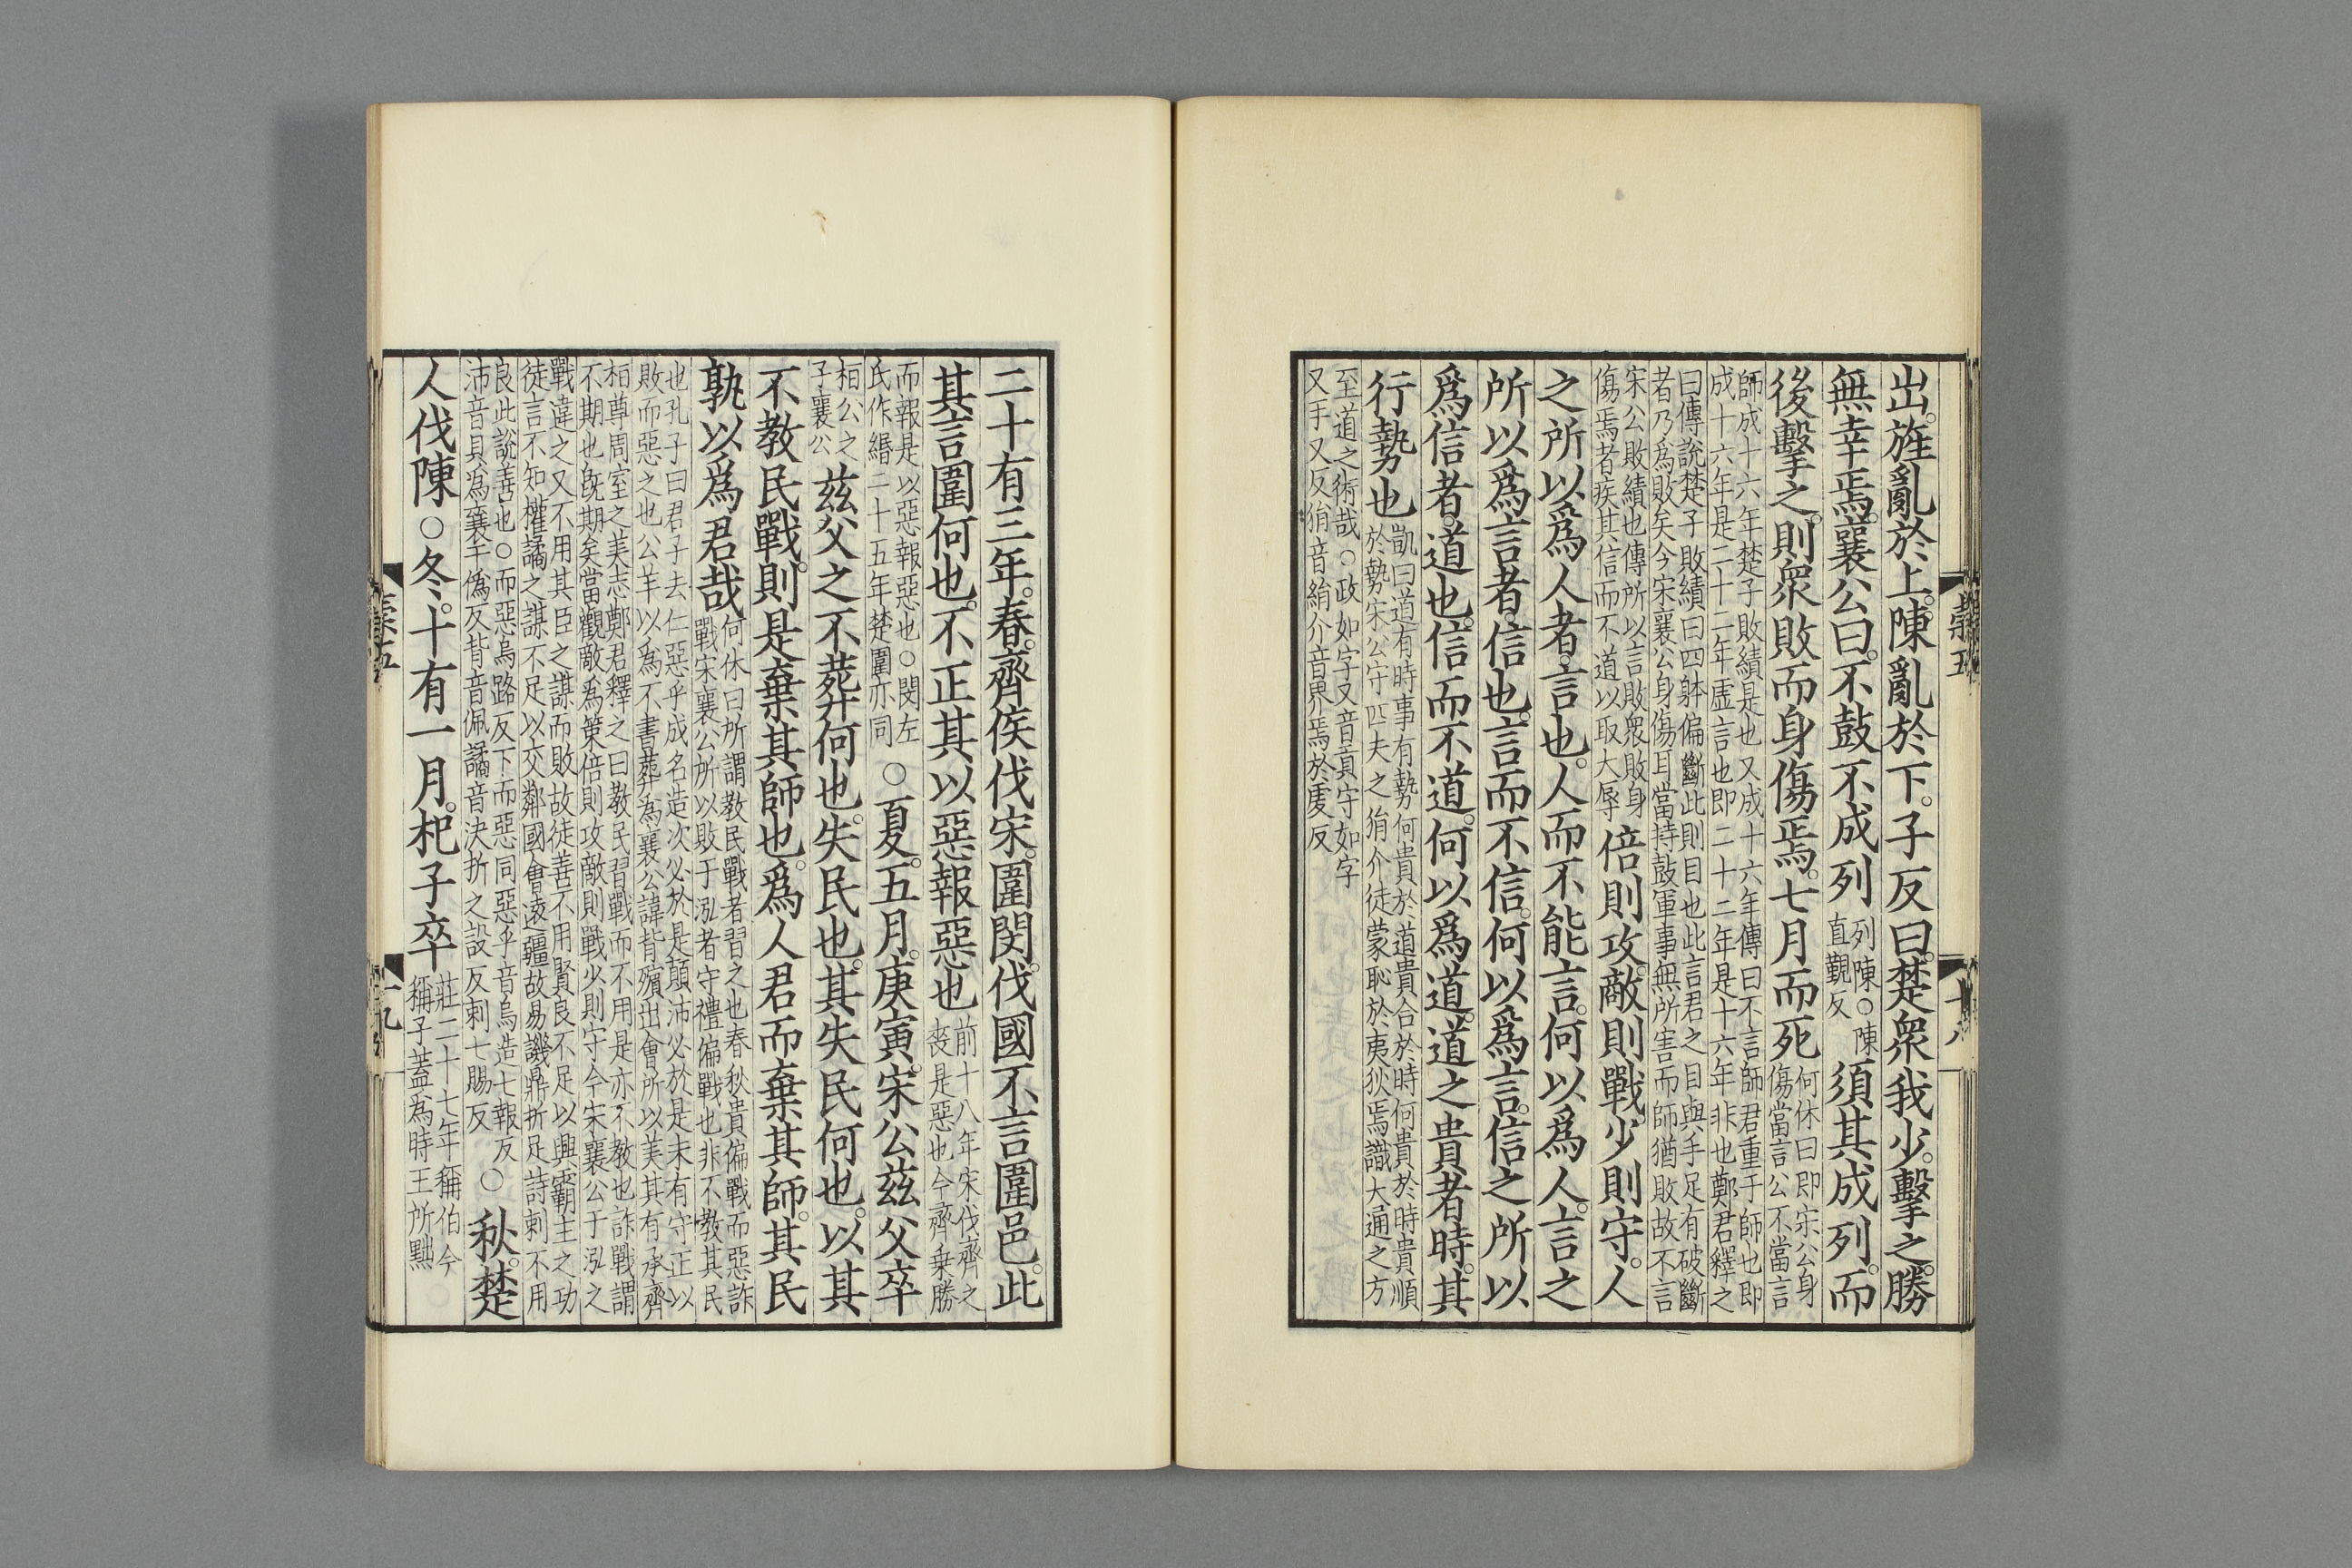 出。旌亂於上。陳亂於下。子反曰。楚衆我少。擊之。勝
無幸焉。襄公曰。不鼓不成列
列陳。○陳
直覲反
須其成列。而
後擊之。則衆敗而身傷焉。七月而死
何休曰即宋公身
傷當言公不當言
師成十六年楚子敗績是也又成十六年傳曰不言師君重于師也即
成十六年是二十二年虛言也即二十二年是十六年非也鄭君釋之
曰傳說楚子敗績曰四躰偏斷此則目也此言君之目與手足有破斷
者乃爲敗矣今宋襄公身傷耳當持鼓軍事無所害而師猶敗故不言
宋公敗績也傳所以言敗衆敗身
傷焉者疾其信而不道以取大辱
倍則攻。敵則戰。少則守。人
之所以爲人者。言也。人而不能言。何以爲人。言之
所以爲言者。信也。言而不信。何以爲言。信之所以
爲信者。道也。信而不道。何以爲道。道之貴者時。其
行勢也
凱曰道有時事有勢何貴於道貴合於時何貴於時貴順
於勢宋公守匹夫之狷介徒蒙恥於夷狄焉識大通之方
至道之術哉。○政如字又音貢守如字
又手又反狷音絹介音界焉於虔反
崇五
十八
二十有三年。春。齊侯伐宋。圍閔。伐國不言圍邑。此
其言圍何也。不正其以惡報惡也
前十八年宋伐齊之
喪是惡也今齊乗勝
而報是以惡報惡也。○閔左
氏作緡二十五年楚圍亦同
○夏。五月。庚寅。宋公茲父卒
桓公之
子襄公
茲父之不葬何也。失民也。其失民何也。以其
不教民戰。則是棄其師也。爲人君而棄其師。其民
孰以爲君哉
何休曰所謂教民戰者習之也春秋貴偏戰而惡詐
戰宋襄公所以敗于泓者守禮偏戰也非不教其民
也孔子曰君子去仁惡乎成名造次必於是顛沛必於是未有守正以
敗而惡之也公羊以爲不書葬爲襄公諱背殯出會所以美其有承齊
桓尊周室之美志鄭君釋之曰教民習戰而不用是亦不教也詐戰謂
不期也旣期矣當觀敵爲策倍則攻敵則戰少則守今宋襄公于泓之
戰違之又不用其臣之謀而敗故徒善不用賢良不足以興霸主之功
徒言不知權譎之謀不足以交鄰國會遠疆故易譏鼎折足詩刺不用
良此說善也。○而惡烏路反下而惡同惡乎音烏造七報反
沛音貝爲襄于僞反背音佩譎音決折之設反刺七賜反
○秋。楚
人伐陳○冬。十有一月。杞子卒
莊二十七年稱伯今
稱子蓋爲時王所黜
崇五
十九